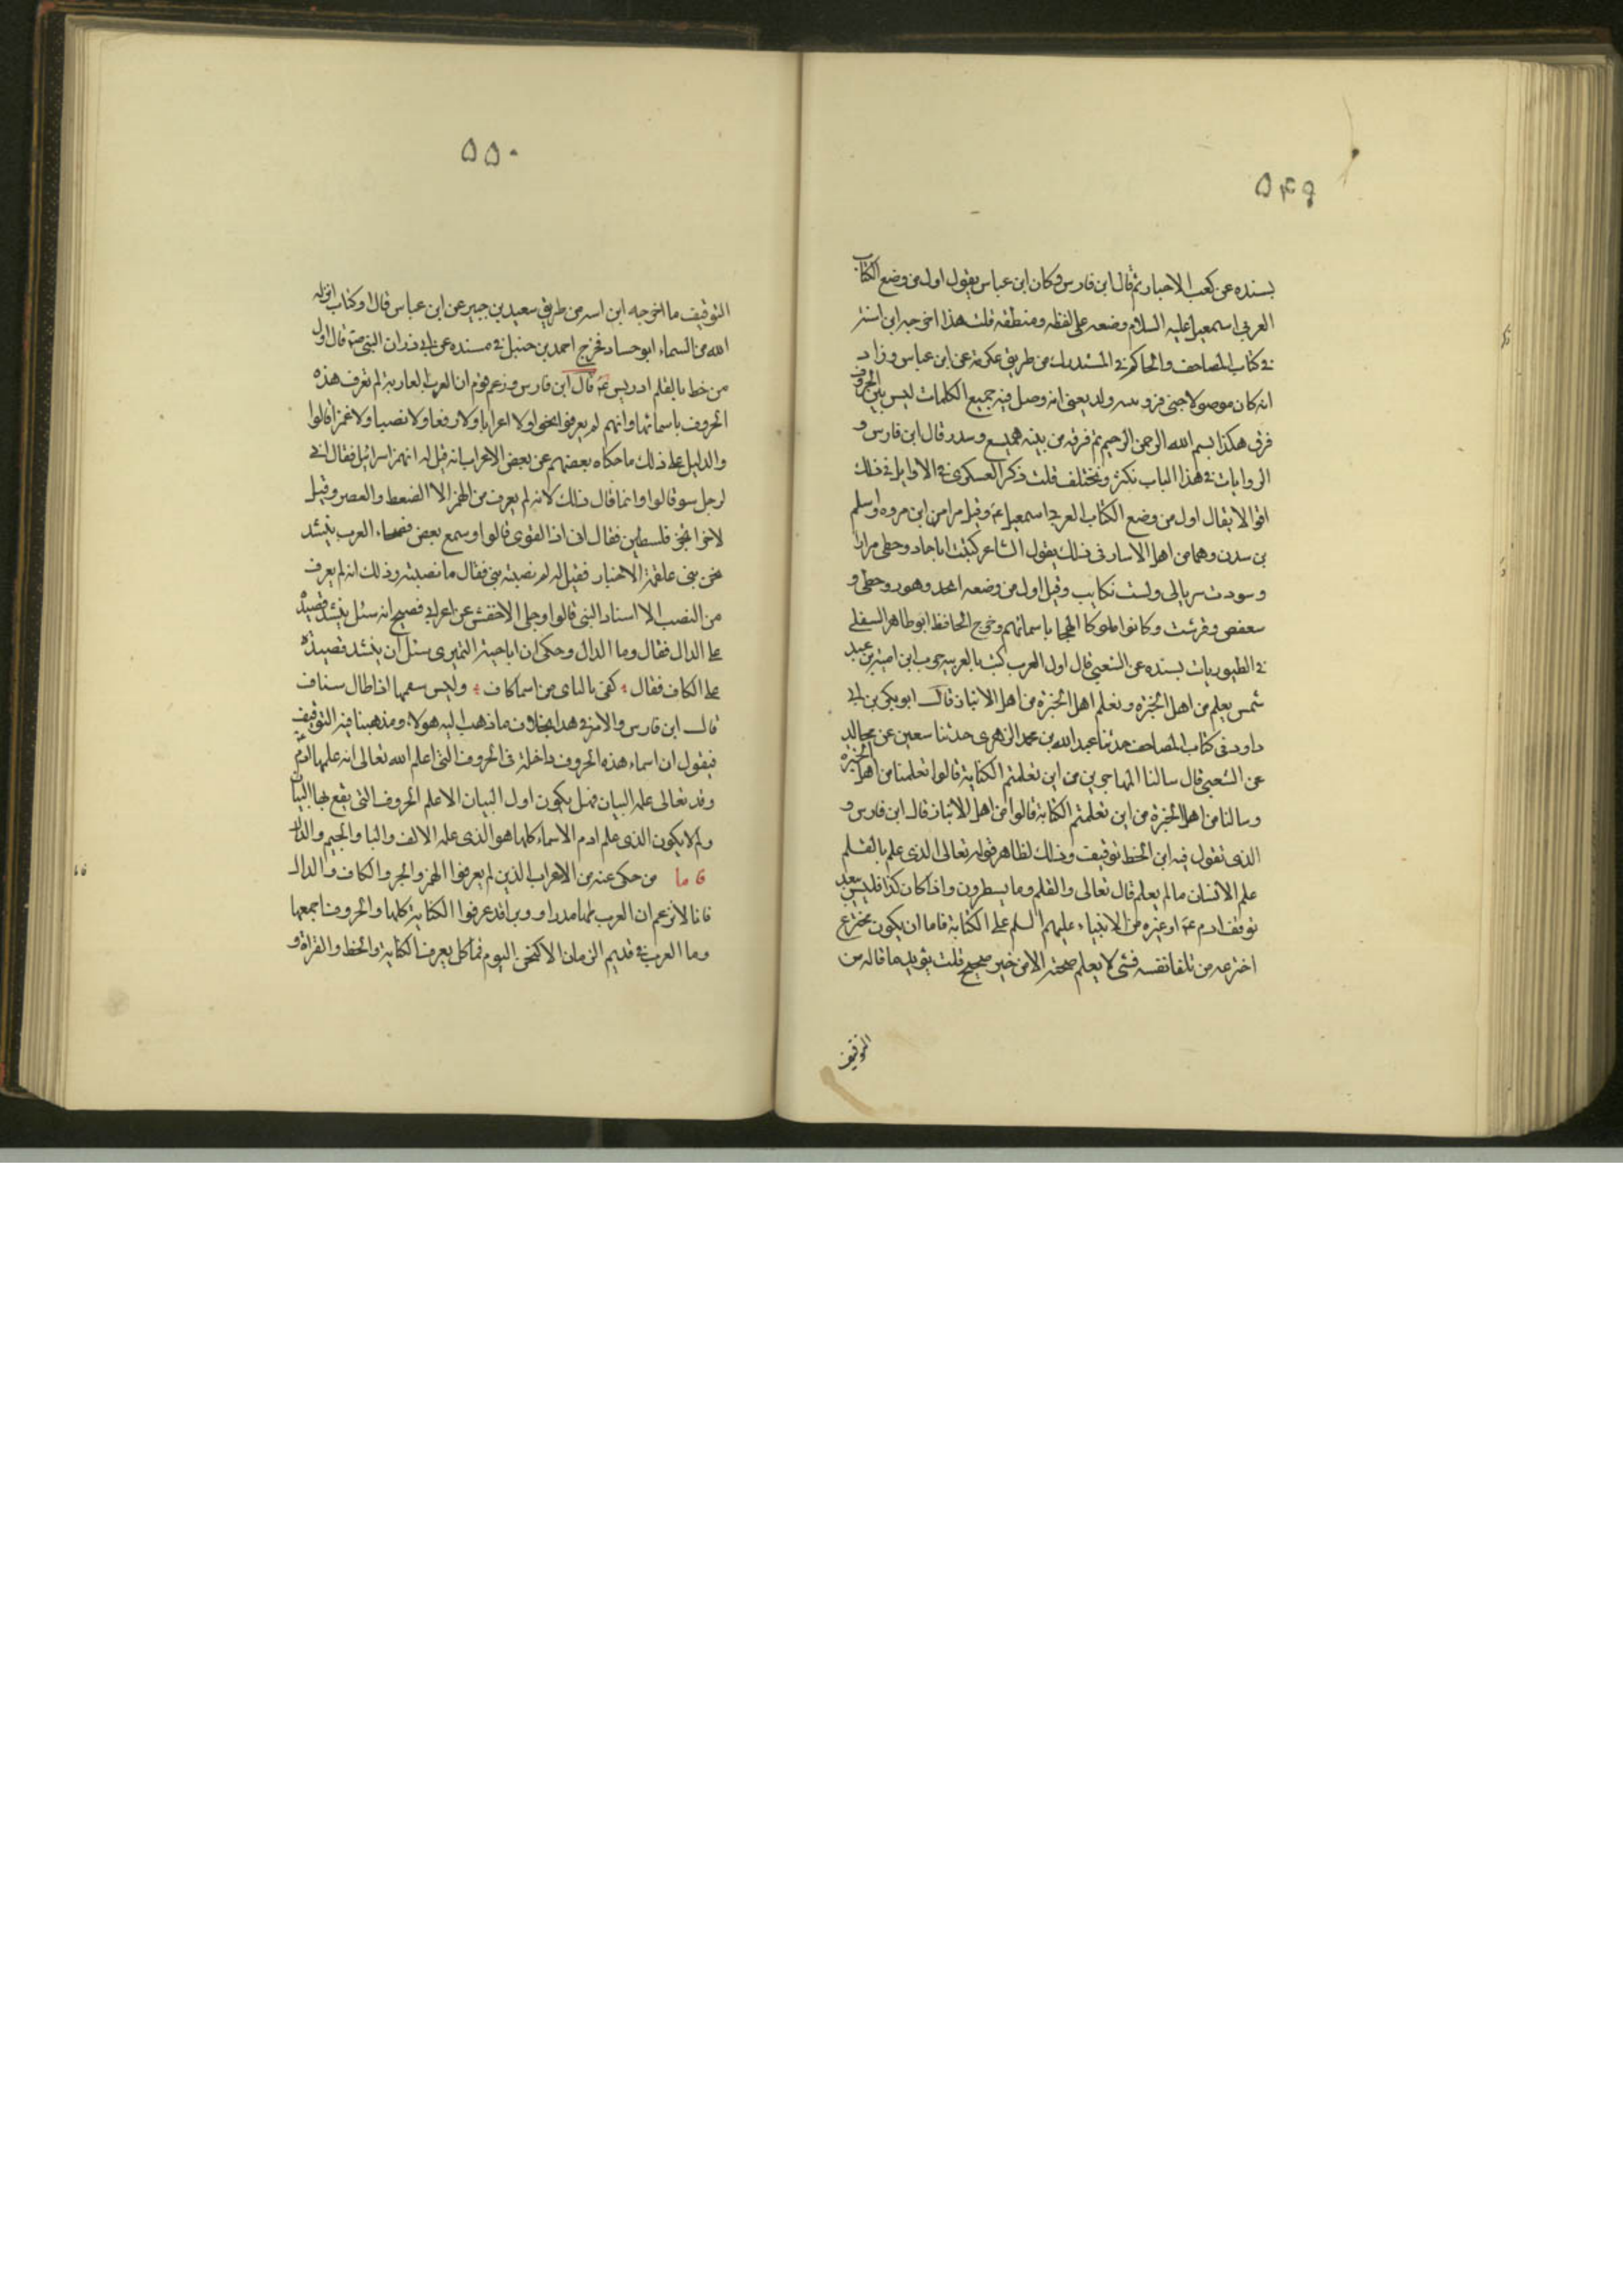 ۵۴۹
بسنده عن كعب الاحبار ثم قال ابن فارس وكان ابن عباس يقول اول من وضع الكتاب
العربى اسمعيل عليه السلام وضعه على لفظه ومنطقه قلت هذا اخرجه ابن اشته
فى كتاب المصاحف والحاكم فى المستدرك من طريق عكرمة عن ابن عباس وزاد
انه كان موصولا حتى فرق بينه ولده يعنى انه وصل فيه جميع الكلمات ليس بين الحروف
فرق هكذا بسم الله الرحمن الرحيم ثم فرقه من بينه هميسع وسدر قال ابن فارس و
الروايات فى هذا الباب تكثر وتختلف قلت ذكر العسكرى فى الاوايل فى ذلك
اقوالا يقال اول من وضع الكتاب العربى اسمعيل عم وقيل مرامر ابن مروه واسلم
بن سدن وهما من اهل الانبار فى ذلك يقول الشاعر كتبت اباجاد وحطى مرارا
وسودت سربالى ولست بكاتب وقيل اول من وضعه ابجد وهوز وحطى و
سعفص وقرشت وكانوا ملوكا الهجا باسمائهم وخرج الحافظ ابوطاهر السلفى
فى الطيوريات بسنده عن الشعبى قال اول العرب كتب بالعربيه حرب ابن امية بن عبد
شمس يعلم من اهل الحيرة وتعلم اهل الحيرة من اهل الانبار قال ابوبكر بن ابى
داود فى كتاب المصاحف حدثنا عبد الله بن محمد الزهرى حدثنا سعين عن مجالد
عن الشعبى قال سالنا المهاجرين من اين تعلمتم الكتابة قالوا تعلمنا من اهل الحيرة
وسالنا من اهل الحيرة من اين تعلمتم الكتابة قالوا من اهل الانبار قال ابن فارس و
الذى نقول فيه ان الخط توقيف وذلك لظاهر قوله تعالى الذى علم بالقلم
علم الانسان مالم يعلم قال تعالى والقلم وما يسطرون واذا كان كذا فليس ببعيد
توقف ادم عم او غيره من الانبياء عليهم السلم على الكتابة فاما ان يكون مخترع
اخترعه من تلقا نفسه فشى لا يعلم صحته الا من خبر صحيح قلت يؤيد ما قاله من
التوقيف
۵۵۰
التوقيف ما اخرجه ابن اسه من طريق سعيد بن جبير عن ابن عباس قال اول كتاب انزله
الله من السماء ابوجساد فخرج احمد بن حنبل فى مسنده عن ابى ذر ان النبى صم قال اول
من خط بالقلم ادريس عم قال ابن فارس وزعم قوم ان العرب العاربة لم تعرف هذه
الحروف باسمائها وانهم لم يعرفوا نحوا ولا اعرابا ولا رفعا ولا نصبا ولا همزا قالوا
والدليل على ذلك ما حكاه بعضهم عن بعض الاعراب انه قيل له اتهمز اسرائيل فقال انى
لرجل سو قالوا وانما قال ذلك لانه لم يعرف من الهمز الا الضغط والعصر وقيل
لاخر اتجر فلسطين فقال انى اذا لقوى قالوا وسمع بعض فصحاء العرب ينشد
نحن بنى علقمة الاخيار فقيل له لم نصبت بنى فقال ما نصبته وذلك انه لم يعرف
من النصب الا اسناد الشى قالوا وحكى الاخفش عن اعرابى فصيح انه سئل ينشد قصيدة
على الدال فقال وما الدال وحكى ان اباحية النميرى سئل ان ينشد قصيدة
على الكاف فقال كفى بالناى من اسما كاف وليس سقمها اذا طال سناف
قال ابن فارس والامر فى هذا بخلاف ما ذهب اليه هولاء ومذهبنا فيه التوقيف
فيقول ان اسماء هذه الحروف داخلة فى الحروف التى اعلم الله تعالى انه علمها ادم
وقد تعالى علمه البيان فهل يكون اول البيان الا علم الحروف التى يقع بها البيان
ولم لا يكون الذى علم ادم الاسماء كلها هو الذى علمه الالف والبا والجيم والدال
فاما من حكى عنه من الاعراب الذين لم يعرفوا الهمز والجر والكاف والدال
فانا لا نزعم ان العرب كلها مدرا ووبرا قد عرفوا الكتابة كلها والحروف اجمعها
وما العرب فى قديم الزمان الا كنحن اليوم فما كل يعرف الكتابة والخط والقراة و